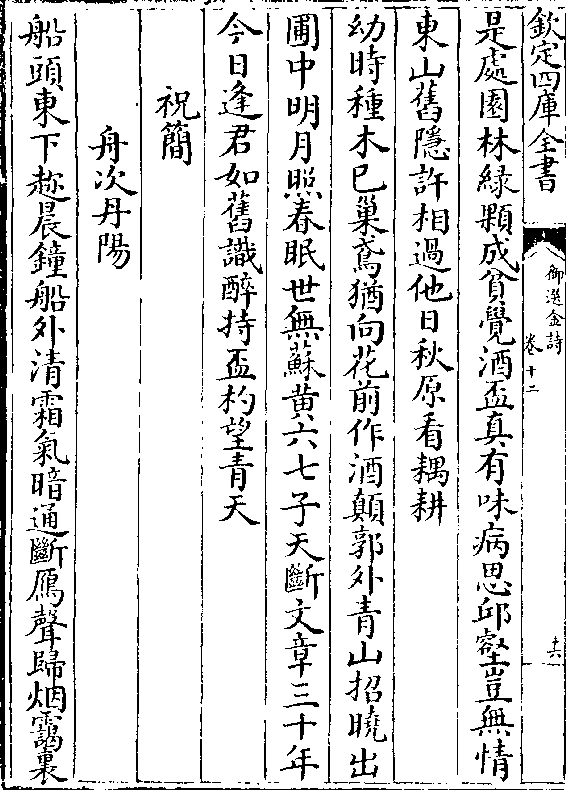 欽定四庫全書
御選金詩
卷十二
十六
是處園林綠顆成貧覺酒盃真有味病思邱壑豈無情
東山舊隱許相過他日秋原看耦耕
幼時種木已巢鳶猶向花前作酒顛郭外青山招曉出
圃中明月照春眠世無蘇黄六七子天斷文章三十年
今日逢君如舊識醉持盃杓望青天
祝簡
舟次丹陽
船頭東下趂晨鐘船外清霜氣暗通斷鴈聲歸烟靄裏